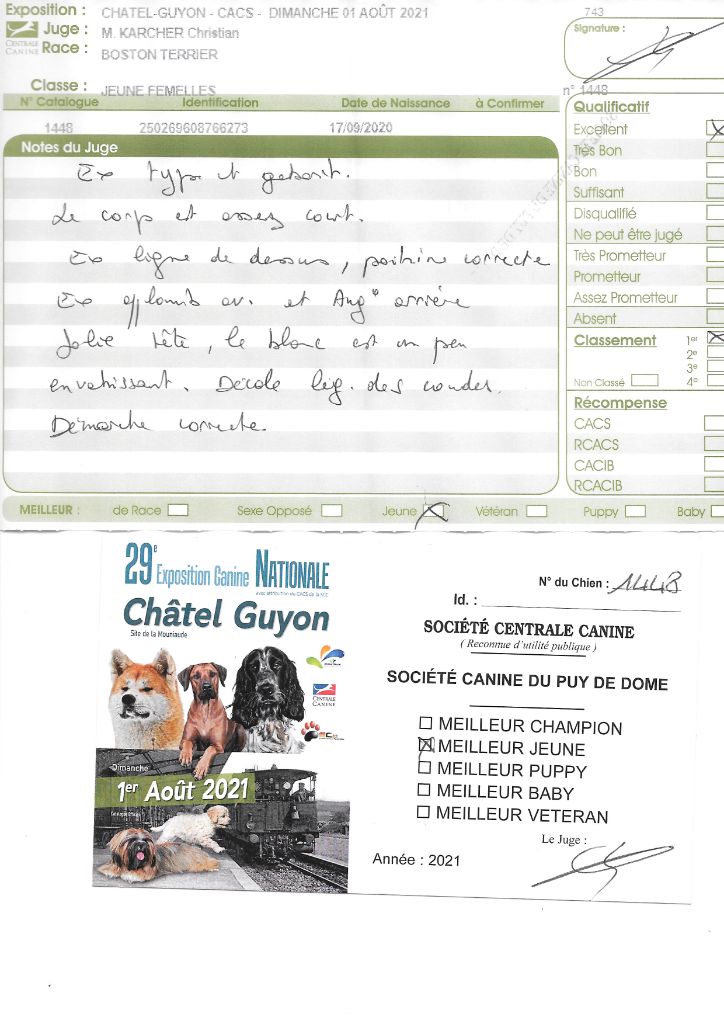 Exposition : CHATEL-GUYON - CACS - DIMANCHE 01 AOÛT 2021
743
Juge : M. KARCHER Christian
CENTRALE CANINE
Race : BOSTON TERRIER
Signature :
Classe : JEUNE FEMELLES
n° 1448
N° Catalogue Identification Date de Naissance à Confirmer
1448 250269608766273 17/09/2020
Notes du Juge
Ex type et gabarit.
Le corps est assez court.
Ex ligne de dessus, poitrine correcte
Ex aplomb av. et Ang° arrière
Jolie tête, le blanc est un peu
envahissant. Décole lég. des coudes.
Démarche correcte.
Qualificatif
Excellent
Très Bon
Bon
Suffisant
Disqualifié
Ne peut être jugé
Très Prometteur
Prometteur
Assez Prometteur
Absent
Classement 1er
2e
3e
Non Classé 4e
Récompense
CACS
RCACS
CACIB
RCACIB
MEILLEUR : de Race Sexe Opposé Jeune Vétéran Puppy Baby
29e Exposition Canine NATIONALE
avec attribution du CACS de la SCC
Châtel Guyon
Site de la Mouniaude
CENTRALE CANINE
Dimanche
1er Août 2021
N° du Chien : 1448
Id. :
SOCIÉTÉ CENTRALE CANINE
( Reconnue d'utilité publique )
SOCIÉTÉ CANINE DU PUY DE DOME
MEILLEUR CHAMPION
MEILLEUR JEUNE
MEILLEUR PUPPY
MEILLEUR BABY
MEILLEUR VETERAN
Le Juge :
Année : 2021